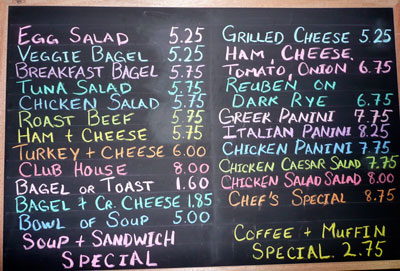 Egg Salad 5.25
Veggie Bagel 5.25
Breakfast Bagel 5.75
Tuna Salad 5.75
Chicken Salad 5.75
Roast Beef 5.75
Ham + Cheese 5.75
Turkey + Cheese 6.00
Club House 8.00
Bagel or Toast 1.60
Bagel + Cr. Cheese 1.85
Bowl of Soup 5.00
Soup + Sandwich
Special
Grilled Cheese 5.25
Ham, Cheese,
Tomato, Onion 6.75
Reuben on
Dark Rye 6.75
Greek Panini 7.75
Italian Panini 8.25
Chicken Panini 7.75
Chicken Caesar Salad 7.75
Chicken Salad Salad 8.00
Chef's Special 8.75
Coffee + Muffin
Special. 2.75